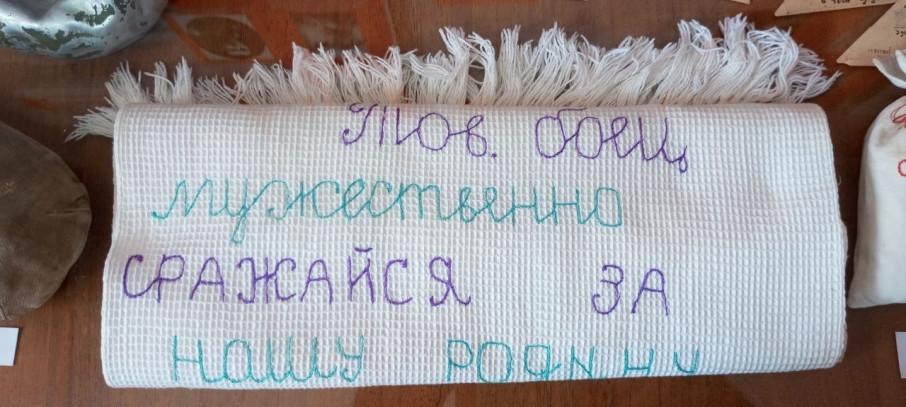 Тов. боец
мужественно
СРАЖАЙСЯ ЗА
НАШУ РОДИНУ